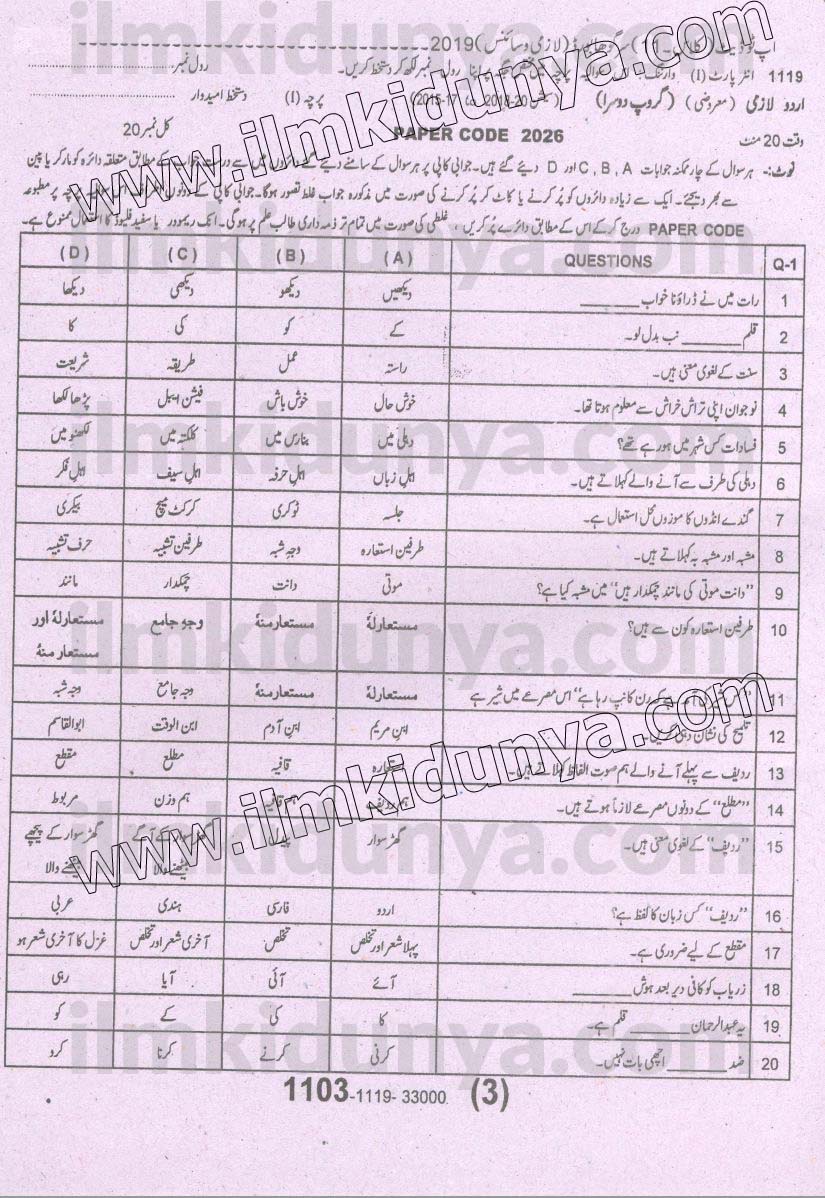 اپ ٹو ڈیٹ (کلاس۔11) سرگودھا بورڈ (لازمی و سائنس) 2019
1119 انٹر پارٹ (I) پرچہ اپنا رول نمبر لکھ کر دستخط کریں۔ رول نمبر
اردو لازمی (معروضی) (گروپ دوسرا) (سیشن 20-2018 تا 17-2015) پرچہ (I) دستخط امیدوار
وقت 20 منٹ PAPER CODE 2026 کل نمبر 20
نوٹ:- ہر سوال کے چار ممکنہ جوابات C, B, A اور D دیئے گئے ہیں۔ جوابی کاپی پر ہر سوال کے سامنے دیئے گئے دائروں میں سے درست جواب کے مطابق متعلقہ دائرہ کو مارکر یا پین
سے بھر دیجئے۔ ایک سے زیادہ دائروں کو پُر کرنے یا کاٹ کر پُر کرنے کی صورت میں مذکورہ جواب غلط تصور ہوگا۔ جوابی کاپی کے دونوں پرچہ پر مطبوعہ
PAPER CODE درج کرکے اس کے مطابق دائرے پُر کریں، غلطی کی صورت میں تمام تر ذمہ داری طالب علم پر ہوگی۔ انک ریموور یا سفید فلیوڈ کا استعمال ممنوع ہے۔
Q-1 QUESTIONS (A) (B) (C) (D)
1 رات میں نے ڈراؤنا خواب ______ دیکھیں دیکھو دیکھی دیکھا
2 قلم ______ نب بدل لو۔ کے کو کی کا
3 سنت کے لغوی معنی ہیں۔ راستہ عمل طریقہ شریعت
4 نوجوان اپنی تراش خراش سے معلوم ہوتا تھا۔ خوش حال خوش باش فیشن ایبل پڑھا لکھا
5 فسادات کس شہر میں ہو رہے تھے؟ دہلی میں بنارس میں کلکتہ میں لکھنو میں
6 دہلی کی طرف سے آنے والے کہلاتے ہیں۔ اہلِ زباں اہلِ حرفہ اہلِ سیف اہلِ فکر
7 گندے انڈوں کا موزوں محل استعمال ہے۔ جلسہ ٹوکری کرکٹ میچ بیکری
8 مشبہ اور مشبہ بہ کہلاتے ہیں۔ طرفین استعارہ وجہِ شبہ طرفین تشبیہ حرف تشبیہ
9 ”دانت موتی کی مانند چمکدار ہیں“ میں مشبہ کیا ہے؟ موتی دانت چمکدار مانند
10 طرفین استعارہ کون سے ہیں؟ مستعارلہٗ مستعارمنہٗ وجہِ جامع مستعارلہٗ اور
مستعارمنہٗ
11 ”کس شیر کی آمد ہے کہ رن کانپ رہا ہے“ اس مصرعے میں شیر ہے مستعارلہٗ مستعارمنہٗ وجہ جامع وجہ شبہ
12 تلمیح کی نشان دہی کریں۔ ابنِ مریم ابنِ آدم ابن الوقت ابوالقاسم
13 ردیف سے پہلے آنے والے ہم صوت الفاظ کہلاتے ہیں۔ استعارہ قافیہ مطلع مقطع
14 ”مطلع“ کے دونوں مصرعے لازماً ہوتے ہیں۔ ہم ردیف ہم قافیہ ہم وزن مربوط
15 ”ردیف“ کے لغوی معنی ہیں۔ گھڑ سوار پیدل گھڑ سوار کے آگے گھڑ سوار کے پیچھے
بیٹھنے والا بیٹھنے والا
16 ”ردیف“ کس زبان کا لفظ ہے؟ اردو فارسی ہندی عربی
17 مقطع کے لیے ضروری ہے۔ پہلا شعر اور تخلص تخلص آخری شعر اور تخلص غزل کا آخری شعر ہو
18 زریاب کو کافی دیر بعد ہوش ______ آئے آئی آیا رہی
19 یہ عبدالرحمان ______ قلم ہے۔ کا کی کے کو
20 ضد ______ اچھی بات نہیں۔ کرنی کرنے کرنا کرو
1103-1119- 33000 (3)
www.ilmkidunya.com
www.ilmkidunya.com
ilmkidunya.com
ilmkidunya.com
ilmkidunya.com
ilmkidunya.com
ilmkidunya.com
ilmkidunya.com